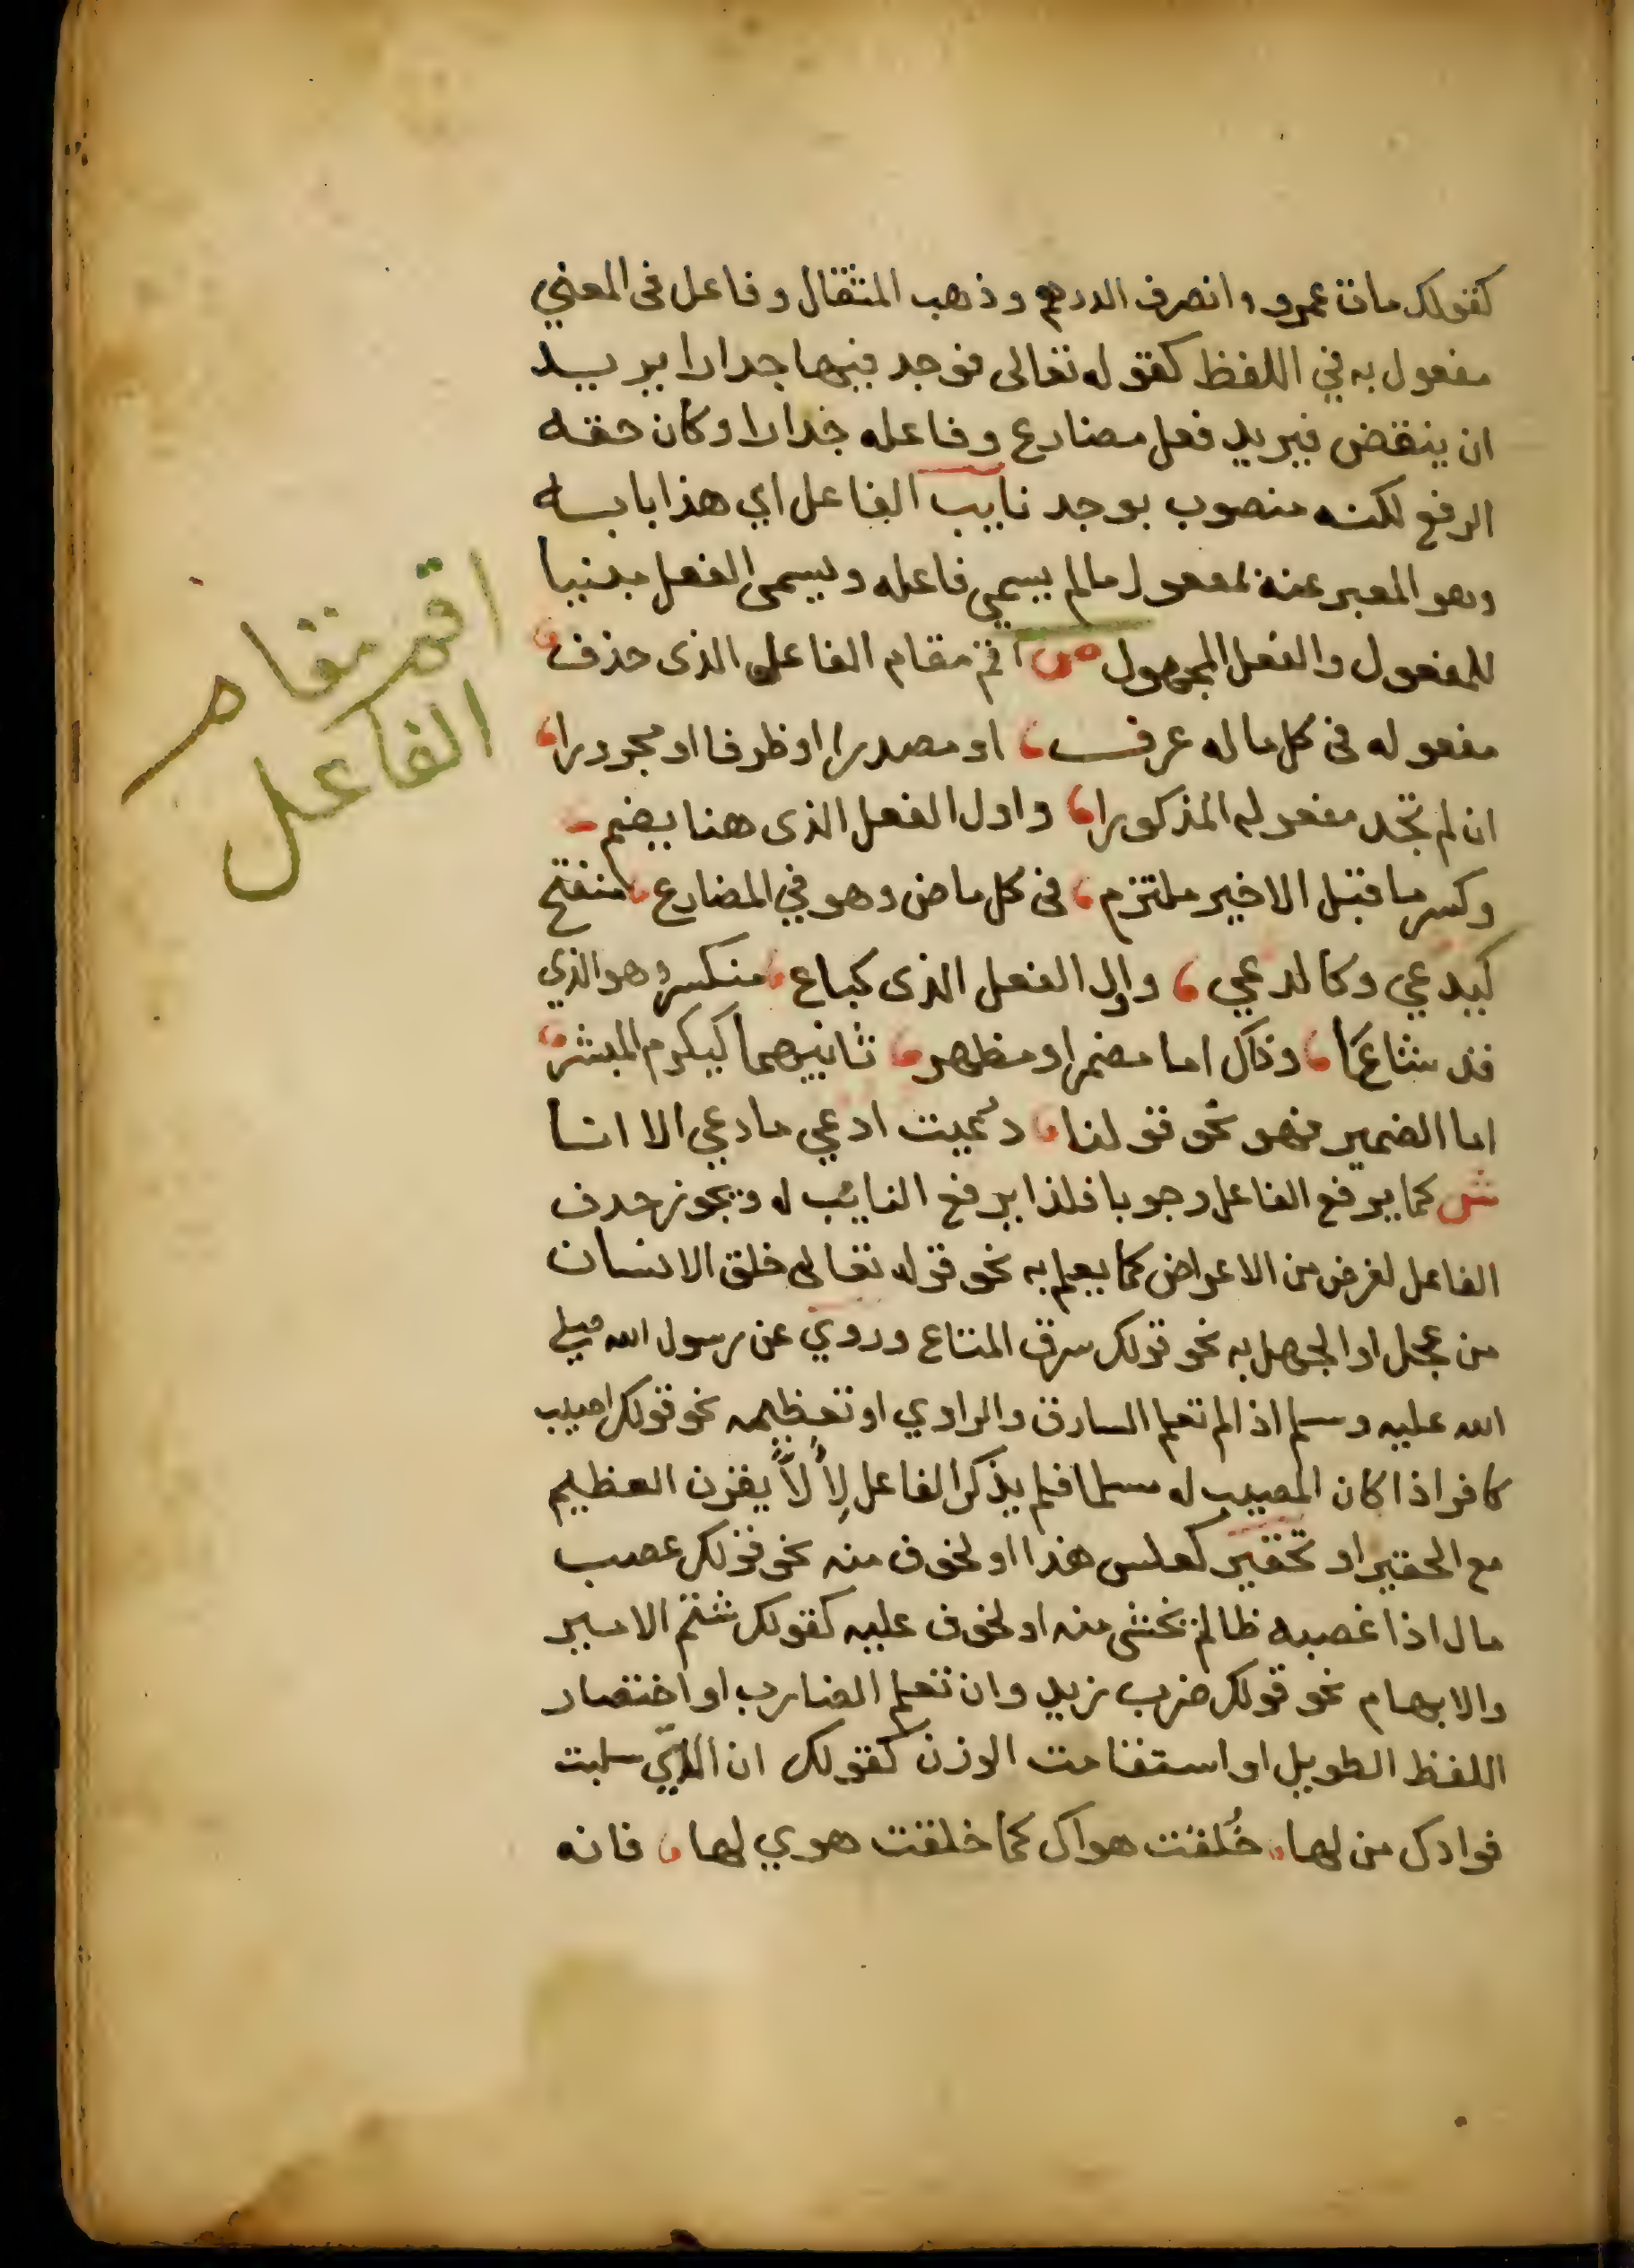 كقولك مات عمرو وانصرف الدرهم وذهب المثقال وفاعل فى المعني
مفعول به في اللفظ كقوله تعالى فوجد فيها جدارا يريد
ان ينقض فيريد فعل مضارع وفاعله جدارا وكان حقه
الرفع لكنه منصوب بوجد نايب الفاعل اي هذا بابه
وهو المعبر عنه لمفعول مالم يسمي فاعله ويسمى الفعل مبنيا
للمفعول والفعل المجهول ص اقم مقام الفاعل الذى حذف
مفعوله فى كل ما له عرف او مصدرا او ظرفا او مجرورا
ان لم تجد مفعوله المذكورا واول الفعل الذى هنا يضم
وكسر ما قبل الاخير ملتزم فى كل ماض وهو في المضارع منفتح
كيدعي وكالدعي واول الفعل الذى كباع منكسر وهو الذي
قد شاعا وذاك اما مضمرا او مظهر ثانيهما كيكرم المبشر
اما الضمير فهو نحو قولنا دعيت ادعي مادعي الا انا
ش كما يرفع الفاعل وجوبا فلذا يرفع النايب له ويجوز حدف
الفاعل لغرض من الاعراض كما يعلم به نحو قوله تعالى خلق الانسان
من عجل او الجهل به نحو قولك سرق المتاع وروي عن رسول الله صلي
الله عليه وسلم اذا لم تعلم السارق والراوي او تعظيمه نحو قولك اصيب
كافر اذا كان المصيب له مسلما فلم يذكر الفاعل لألاً يقرن العظيم
مع الحقير او تحقير كعلس هذا او لخوف منه نحو قولك غصب
مال اذا غصبه ظالم تخشى منه او لخوف عليه كقولك شتم الامير
والابهام نحو قولك ضرب زيد وان تعلم الضارب او اختصار
اللفظ الطويل او استقامت الوزن كقولك ان الذي سلبت
فوادك من لها خُلقت هواك كما خلقت هوي لها فانه
اقم مقام
الفاعل